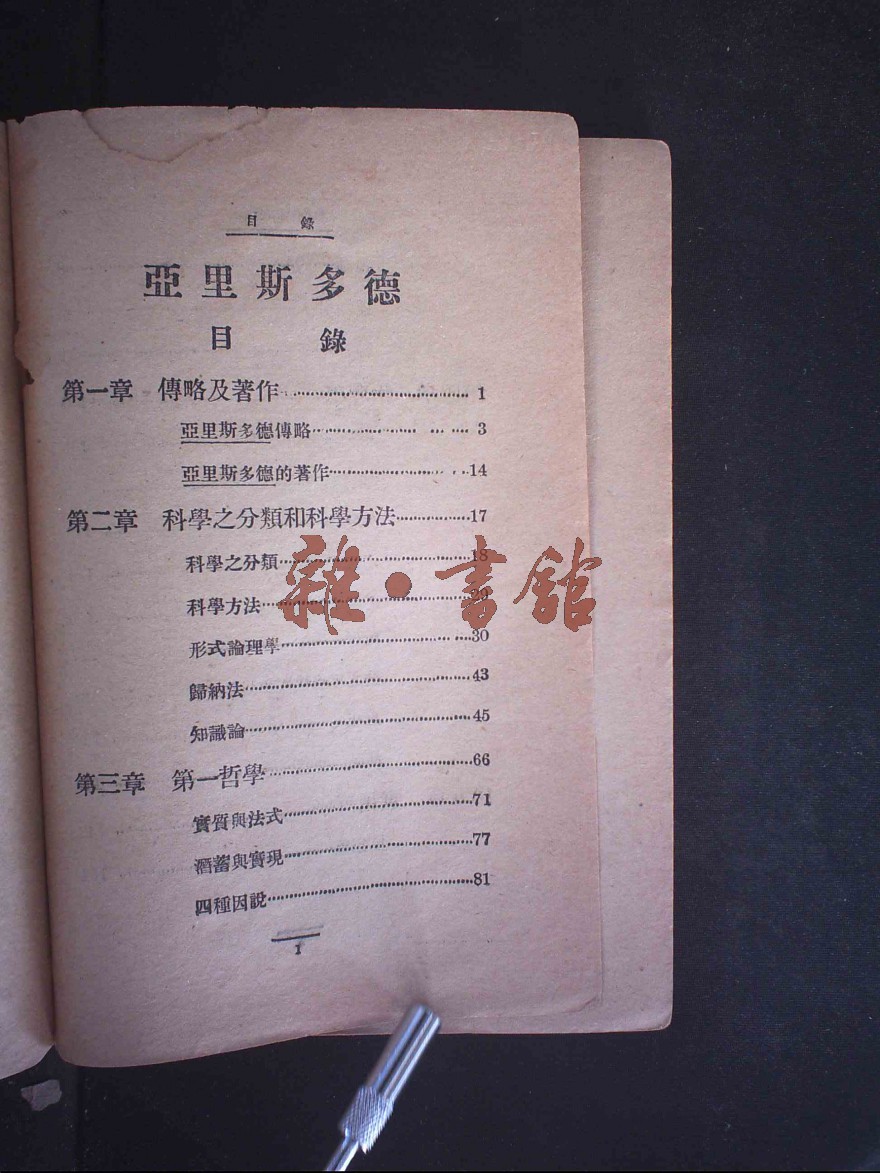 目 錄
亞里斯多德
目 錄
第一章 傳略及著作 1
亞里斯多德傳略 3
亞里斯多德的著作 14
第二章 科學之分類和科學方法 17
科學之分類 18
科學方法
形式論理學 30
歸納法 43
知識論 45
第三章 第一哲學 66
實質與法式 71
潛蓄與實現 77
四種因說 81
1
雜·書館